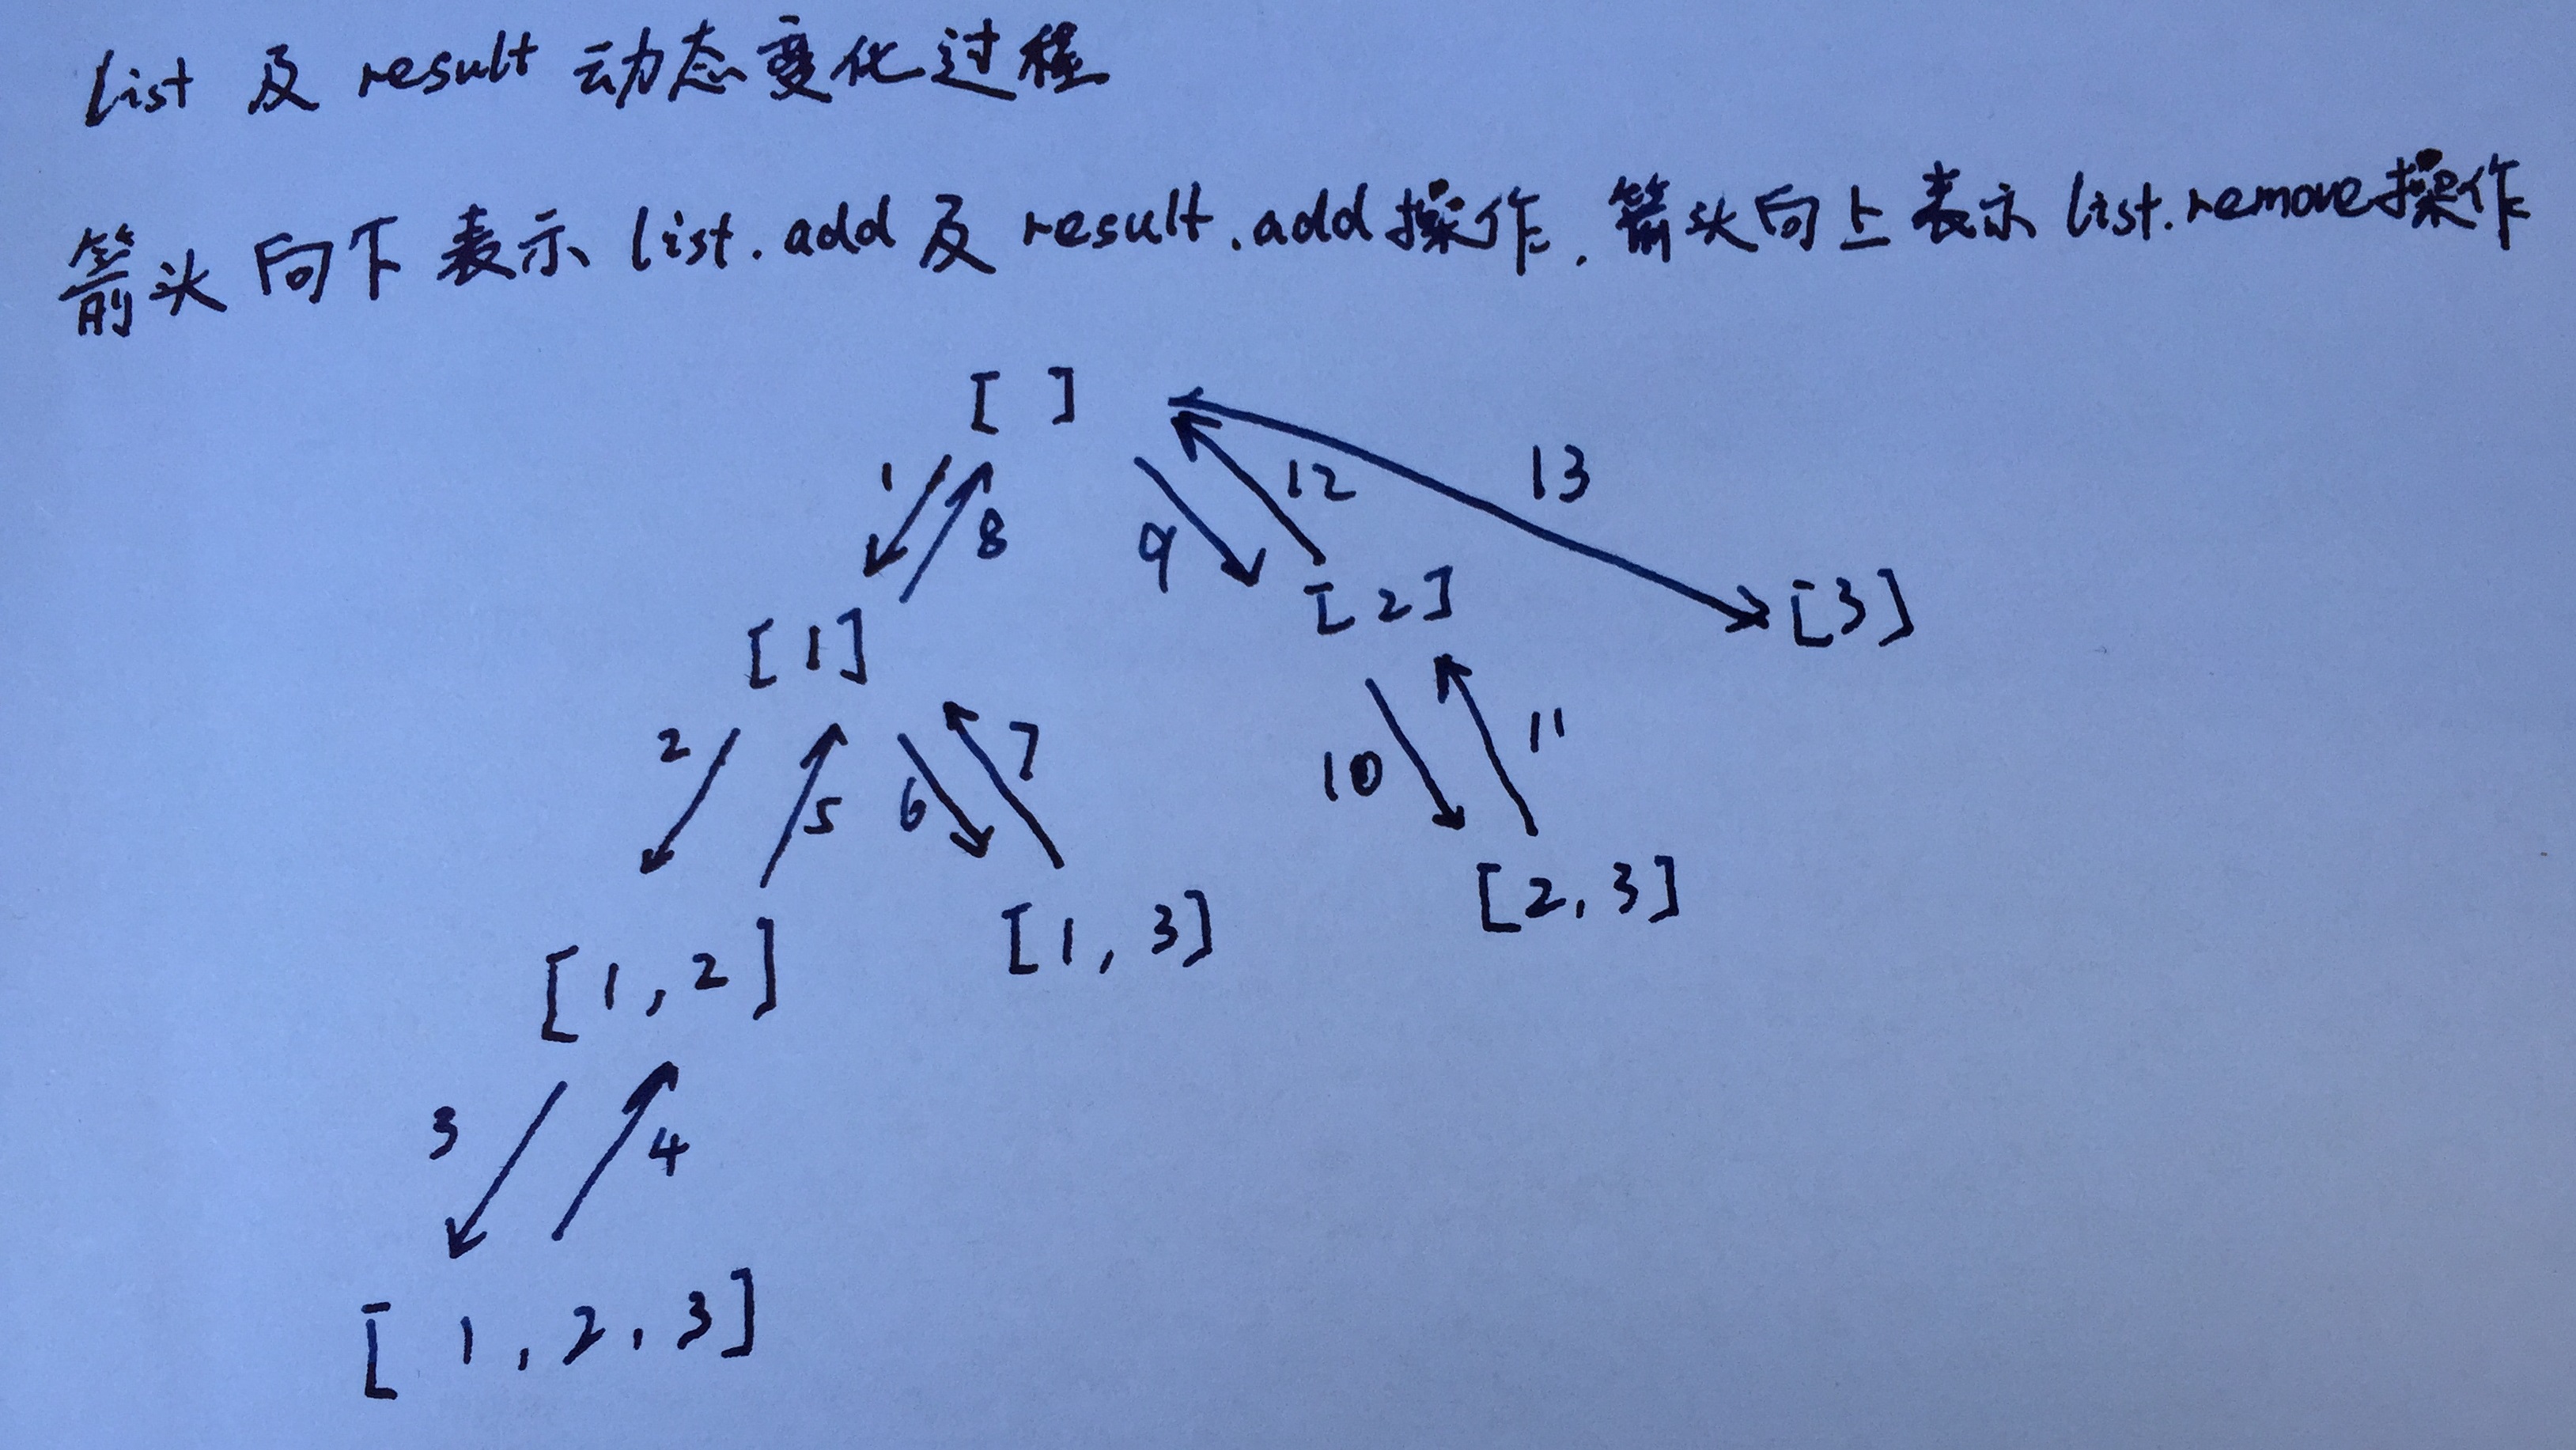 list 及 result 动态变化过程
箭头向下表示 list.add 及 result.add 操作. 箭头向上表示 list.remove操作
[ ]
1 8 9 12 13
[1] [2] [3]
2 5 6 7 10 11
[1,2] [1,3] [2,3]
3 4
[1,2,3]